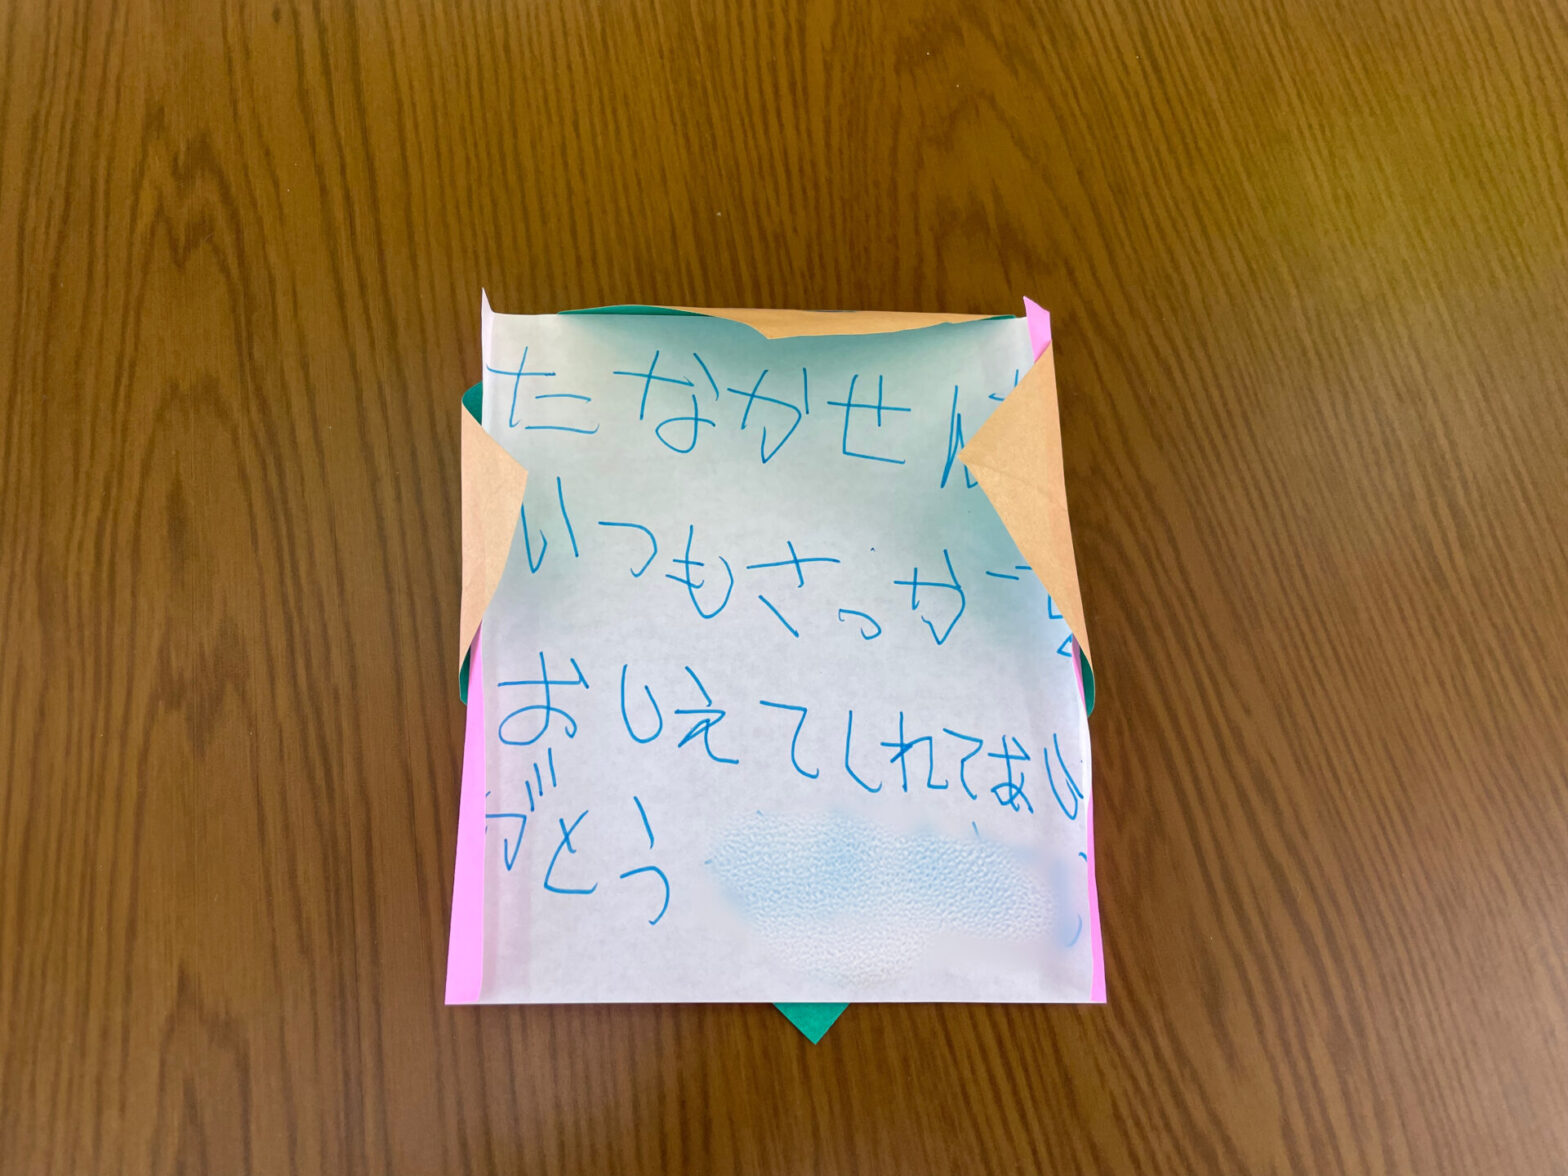 たなかせん
いつもさっかーを
おしえてしれてあり
がとう